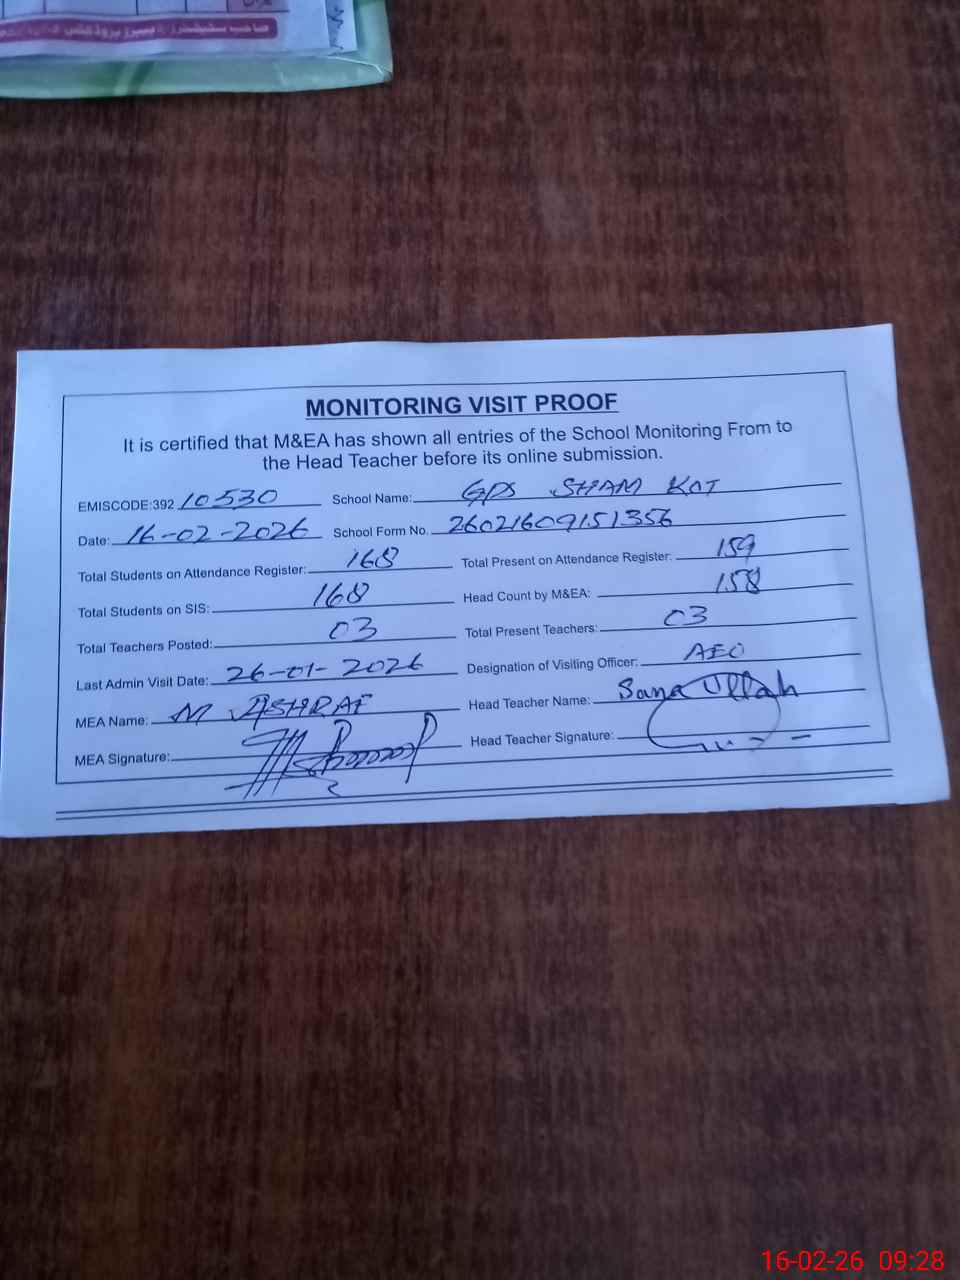 صاحب سٹیشنرز
MONITORING VISIT PROOF
It is certified that M&EA has shown all entries of the School Monitoring From to
the Head Teacher before its online submission.
EMISCODE:392 10530 School Name: GPS SHAM KOT
Date: 16-02-2026 School Form No. 26021609151356
Total Students on Attendance Register: 168 Total Present on Attendance Register: 159
Total Students on SIS: 168 Head Count by M&EA: 158
Total Teachers Posted: 03 Total Present Teachers: 03
Last Admin Visit Date: 26-01-2026 Designation of Visiting Officer: AEO
MEA Name: M ASHRAF Head Teacher Name: Sana Ullah
MEA Signature: Head Teacher Signature:
16-02-26 09:28